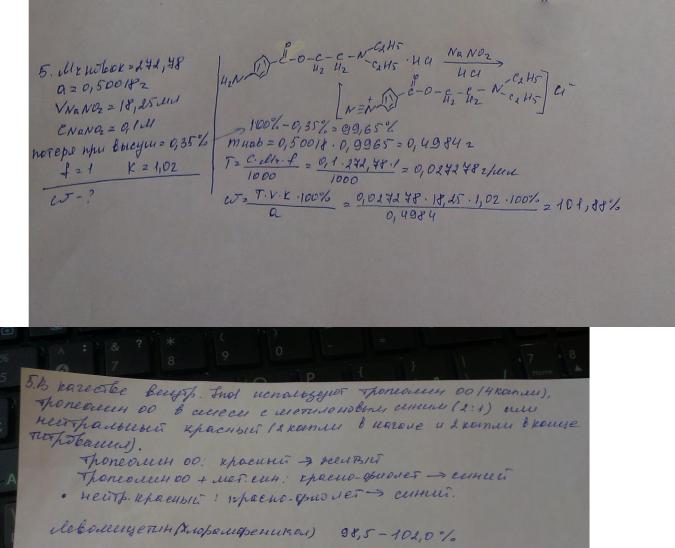 5. Mr новок = 272,78
a = 0,50018 г
VNaNO₂ = 18,25 мл
CNaNO₂ = 0,1 М
потеря при высуш = 0,35%
f = 1 K = 1,02
ω - ?
H₂N C O O C H₂ C H₂ N C₂H₅ C₂H₅ · HCl NaNO₂ HCl
[ N≡N⁺ C O O C H₂ C H₂ N C₂H₅ C₂H₅ ] Cl⁻
100% - 0,35% = 99,65%
m нав = 0,50018 · 0,9965 = 0,4984 г
T = C · Mr · f / 1000 = 0,1 · 272,78 · 1 / 1000 = 0,027278 г/мл
ω = T · V · K · 100% / a = 0,027278 · 18,25 · 1,02 · 100% / 0,4984 = 101,88%
5. В качестве внутр. Ind используют тропеолин 00 (4 капли),
тропеолин 00 в смеси с метиленовым синим (2:1) или
нейтральный красный (2 капли в начале и 2 капли в конце
титрования).
Тропеолин 00: красный → желтый
Тропеолин 00 + мет. син: красно-фиолет → синий
• нейтр. красный: красно-фиолет → синий.
Левомицетин (хлорамфеникол) 98,5 - 102,0%